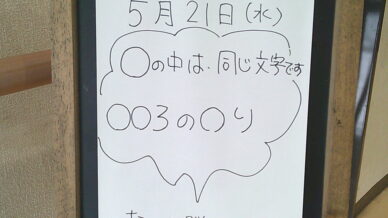 5月21日(水)
○の中は、同じ文字です
○○3の○り